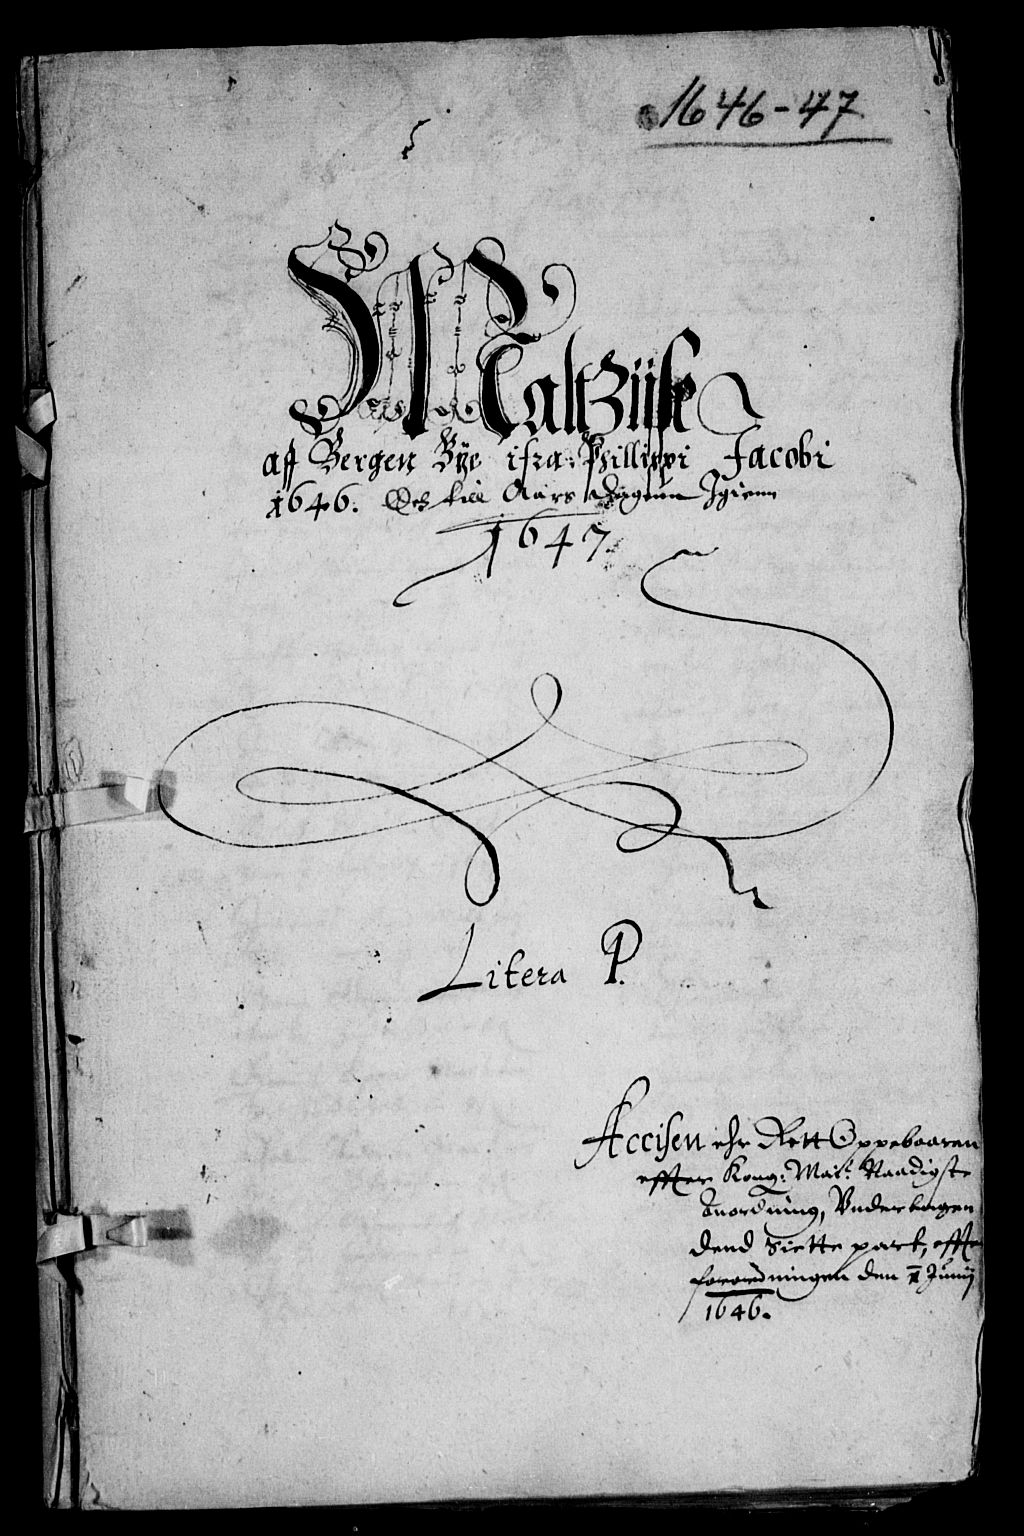 1646-47
MaltZiise
aff Bergen Bÿe ifra: Phillippi Jacobi
1646. Och till Aars dagenn Igienn
1647.
Litera P.
Accisen ehr Rett Oppebaaren
effter Kong: Maÿ: Naadigste
Anordning, Vnder dagen
dend Siette part, effter
forordningen den 1 Junij
1646.